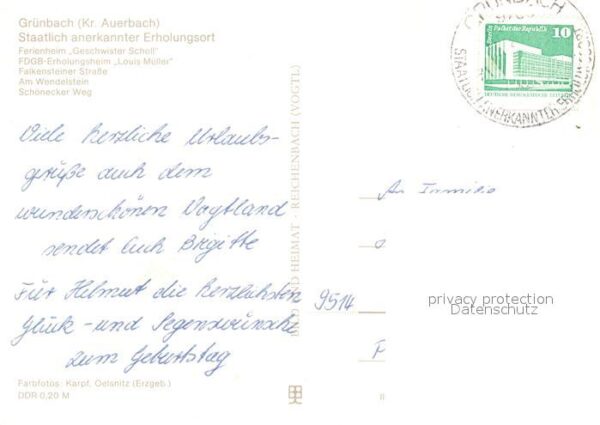 Grünbach (Kr. Auerbach)
Staatlich anerkannter Erholungsort
Ferienheim „Geschwister Scholl"
FDGB-Erholungsheim „Louis Müller"
Falkensteiner Straße
Am Wendelstein
Schönecker Weg
GRÜNBACH
STAATLICH ANERKANNTER ERHOLUNGSORT
Berlin, Palast der Republik
10
DEUTSCHE DEMOKRATISCHE
Viele herzliche Urlaubs-
grüße aus dem
wunderschönen Vogtland
sendet Euch Brigitte
Für Helmut die herzlichsten
Glück- und Segenswünsche
zum Geburtstag
BILD UND HEIMAT · REICHENBACH (VOGTL)
An Familie
9514
privacy protection
Datenschutz
Farbfotos: Karpf, Oelsnitz (Erzgeb.)
DDR 0,20 M